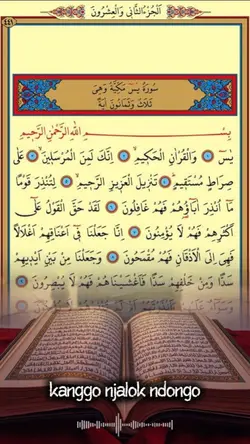 اَلْجُزْءُ الثَّانِي وَالْعِشْرُونَ
٤٤١
سُورَةُ يٰسٓ مَكِّيَّةٌ وَهِيَ
ثَلَاثٌ وَثَمَانُونَ اٰيَةً
بِسْمِ اللّٰهِ الرَّحْمٰنِ الرَّحِيمِ
يٰسٓ ۝ وَالْقُرْاٰنِ الْحَكِيمِ ۝ اِنَّكَ لَمِنَ الْمُرْسَلِينَ ۝ عَلٰى
صِرَاطٍ مُسْتَقِيمٍ ۝ تَنْزِيلَ الْعَزِيزِ الرَّحِيمِ ۝ لِتُنْذِرَ قَوْمًا
مَا اُنْذِرَ اٰبَاؤُهُمْ فَهُمْ غَافِلُونَ ۝ لَقَدْ حَقَّ الْقَوْلُ عَلٰى
اَكْثَرِهِمْ فَهُمْ لَا يُؤْمِنُونَ ۝ اِنَّا جَعَلْنَا فِى اَعْنَاقِهِمْ اَغْلَالًا
فَهِىَ اِلَى الْاَذْقَانِ فَهُمْ مُقْمَحُونَ ۝ وَجَعَلْنَا مِنْ بَيْنِ اَيْدِيهِمْ
سَدًّا وَمِنْ خَلْفِهِمْ سَدًّا فَاَغْشَيْنَاهُمْ فَهُمْ لَا يُبْصِرُونَ ۝
kanggo njalok ndongo